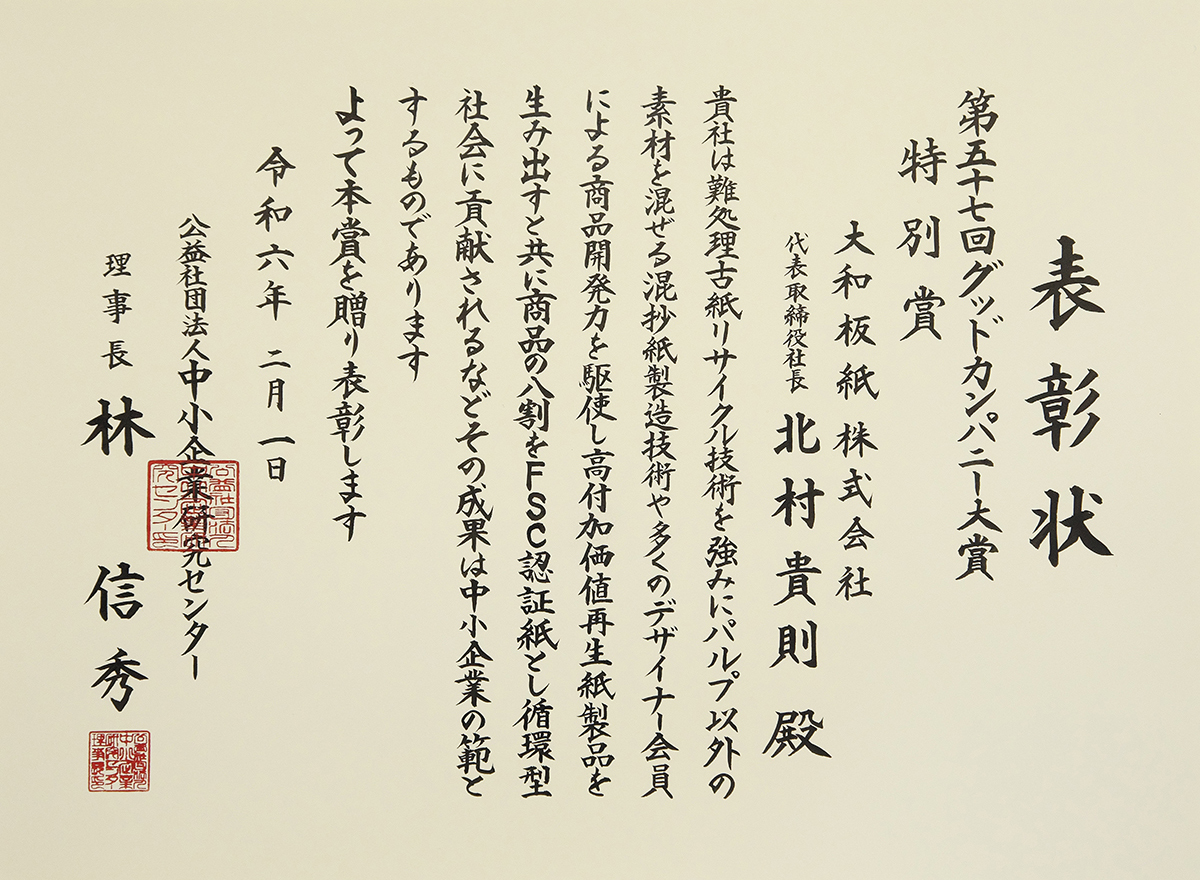 表彰状
第五十七回グッドカンパニー大賞
特別賞
大和板紙株式会社
代表取締役社長 北村貴則 殿
貴社は難処理古紙リサイクル技術を強みにパルプ以外の
素材を混ぜる混抄紙製造技術や多くのデザイナー会員
による商品開発力を駆使し高付加価値再生紙製品を
生み出すと共に商品の八割をFSC認証紙とし循環型
社会に貢献されるなどその成果は中小企業の範と
するものであります
よって本賞を贈り表彰します
令和六年 二月 一日
公益社団法人中小企業研究センター
理事長 林 信秀